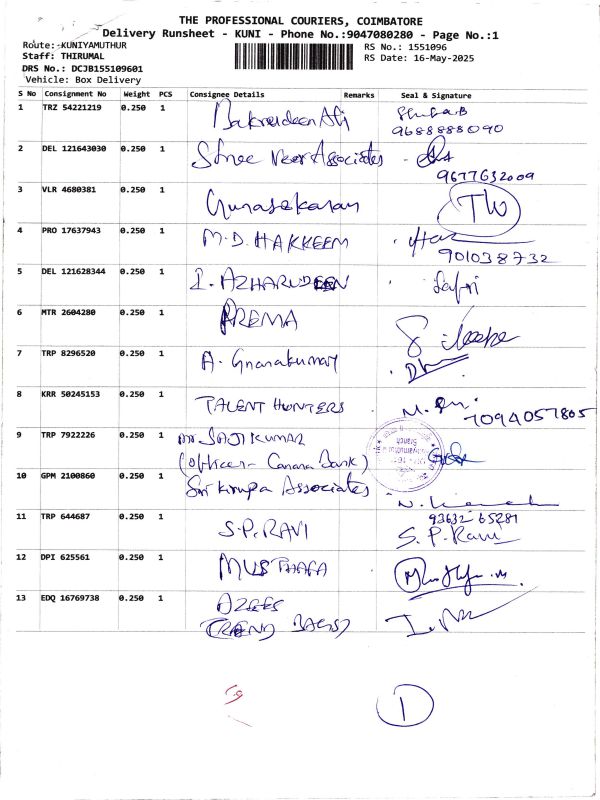 THE PROFESSIONAL COURIERS, COIMBATORE
Delivery Runsheet - KUNI - Phone No.:9047080280 - Page No.:1
Route: KUNIYAMUTHUR
RS No.: 1551096
Staff: THIRUMAL
RS Date: 16-May-2025
DRS No.: DCJB155109601
Vehicle: Box Delivery
S No Consignment No Weight PCS Consignee Details Remarks Seal & Signature
1 TRZ 54221219 0.250 1 Bakrudeen Ali
9688888090
2 DEL 121643030 0.250 1 Shree Veer Associates
9677632009
3 VLR 4680381 0.250 1 Gunasekaran
4 PRO 17637943 0.250 1 M.D. HAKKEEM
901038732
5 DEL 121628344 0.250 1 I. AZHARUDEEN
6 MTR 2604280 0.250 1 PREMA
7 TRP 8296520 0.250 1 A. Gnanakumar
8 KRR 50245153 0.250 1 TALENT HUNTERS
7094057805
9 TRP 7922226 0.250 1 SAJIKUMAR
(Officer - Canara Bank)
10 GPM 2100860 0.250 1 Sri Kirupa Associates
11 TRP 644687 0.250 1 S.P. RAVI 93632 65281
S.P. Ravi
12 DPI 625561 0.250 1 MUSTHAFA
13 EDQ 16769738 0.250 1 AZEES
TREND BAGS
1